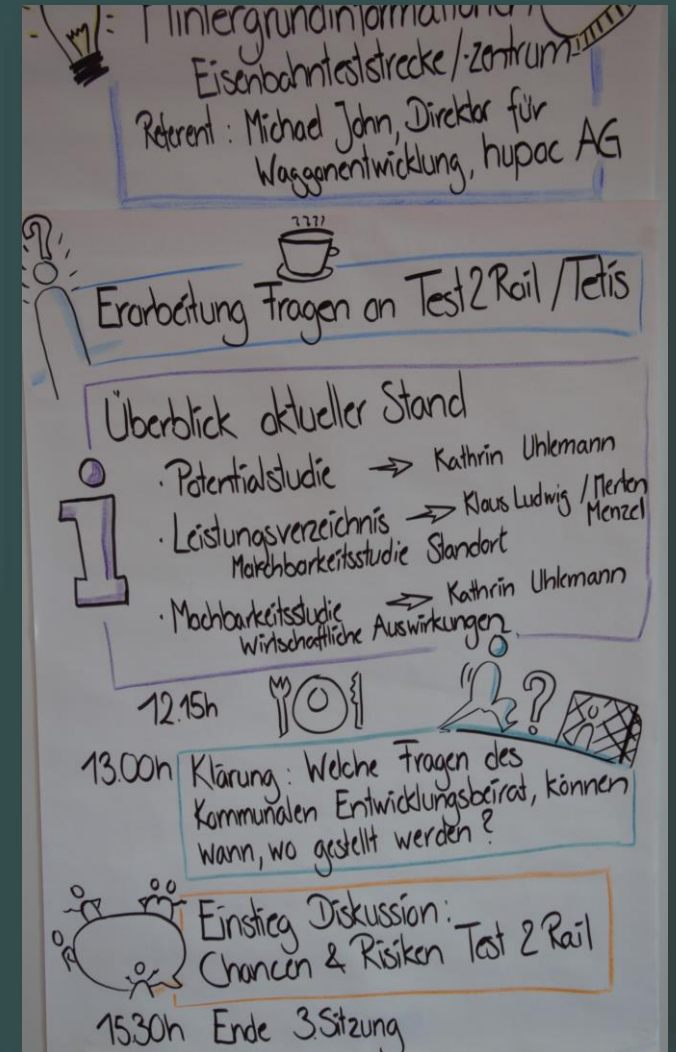 Hintergrundinformationen
Eisenbahnteststrecke/-zentrum
Referent: Michael John, Direktor für
Waggonentwicklung, hupac AG
Erarbeitung Fragen an Test2Rail/Tetis
Überblick aktueller Stand
· Potentialstudie → Kathrin Uhlemann
· Leistungsverzeichnis → Klaus Ludwig / Merten Menzel
Marchbarkeitsstudie Standort
· Machbarkeitsstudie → Kathrin Uhlemann
Wirtschaftliche Auswirkungen
12.15h
13.00h Klärung: Welche Fragen des
Kommunalen Entwicklungsbeirat, können
wann, wo gestellt werden?
Einstieg Diskussion:
Chancen & Risiken Test 2 Rail
15.30h Ende 3.Sitzung